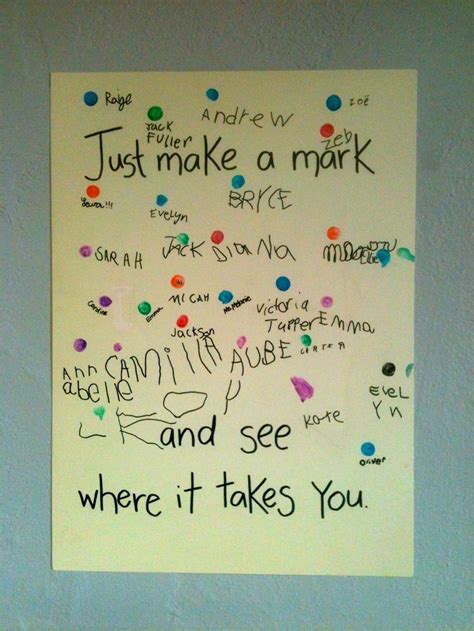 Raige
Andrew
Zoë
Jack
Fuller
Zeb
Just make a mark
Laura!!!
Evelyn
BRYCE
SARAH
JACK
DIANA
Ellie
Caroline
Emma
MICAH
Ms. Melanie
victoria
Tupper
EMMA
Jackson
CARTER
Ann
abelle
CAMIlla
AUBE
Y
EVEL
Yn
Kate
and see
oliver
where it takes you.